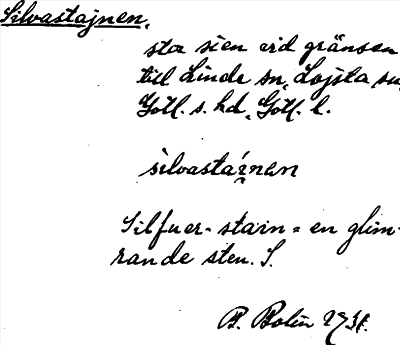 Silvastajnen,
sto sten vid gränsen
till Linde sn, Lojsta sn,
Gotl. s. hd, Gotl. l.
silvastai̯nen
Silfuer-stain = en glim-
rande sten. S.
B. Bolin 1931.